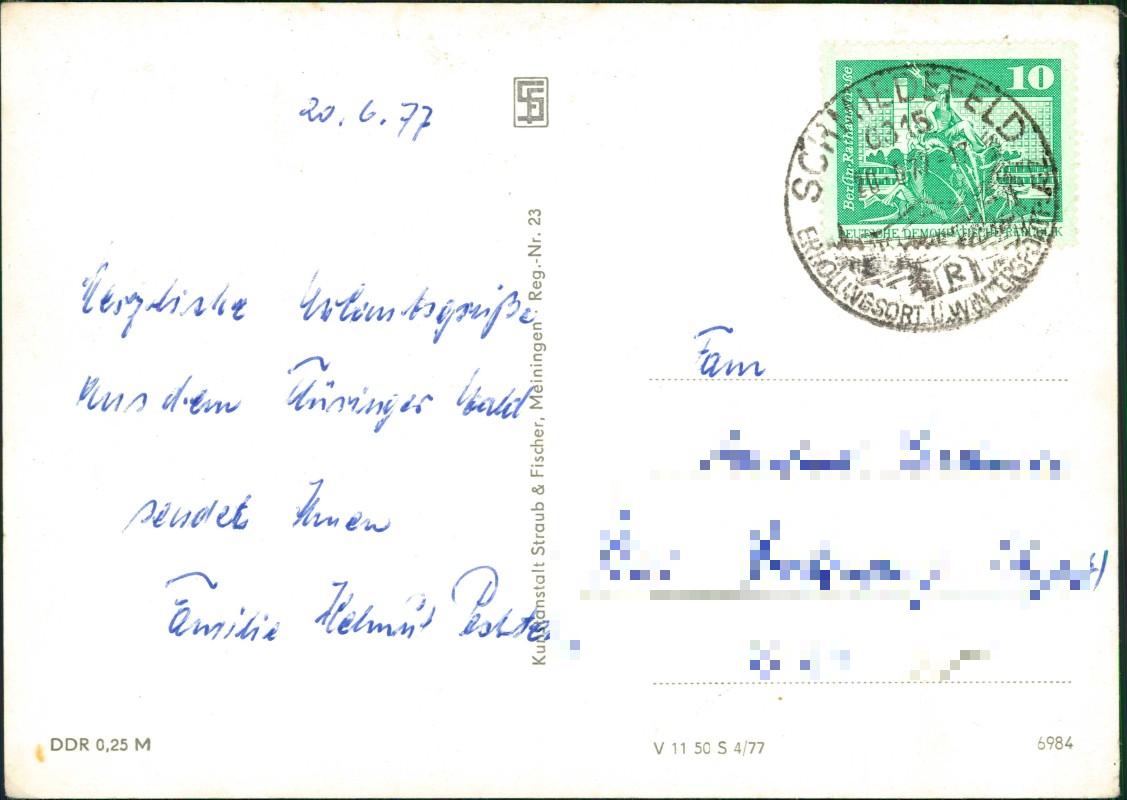 20. 6. 77
Herzliche Urlaubsgrüße
Aus dem Thüringer Wald
sendet Ihnen
Familie Helmut
Kunstanstalt Straub & Fischer, Meiningen Reg.-Nr. 23
10
Berlin · Rathausstraße
DEUTSCHE DEMOKRATISCHE REPUBLIK
SCHMIEDEFELD
6315
ERHOLUNGSORT U. WINTERSPORT
Fam
DDR 0,25 M
V 11 50 S 4/77
6984